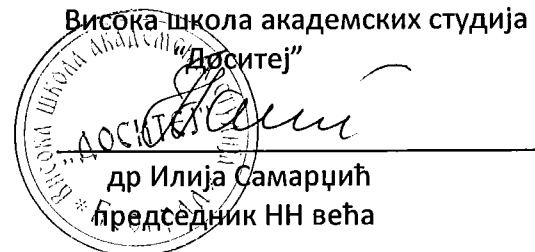 Висока школа академских студија
"Доситеј"
др Илија Самарџић
председник НН већа
* ВИСОКА ШКОЛА АКАДЕМСКИХ СТУДИЈА *
"ДОСИТЕЈ"
БЕОГРАД